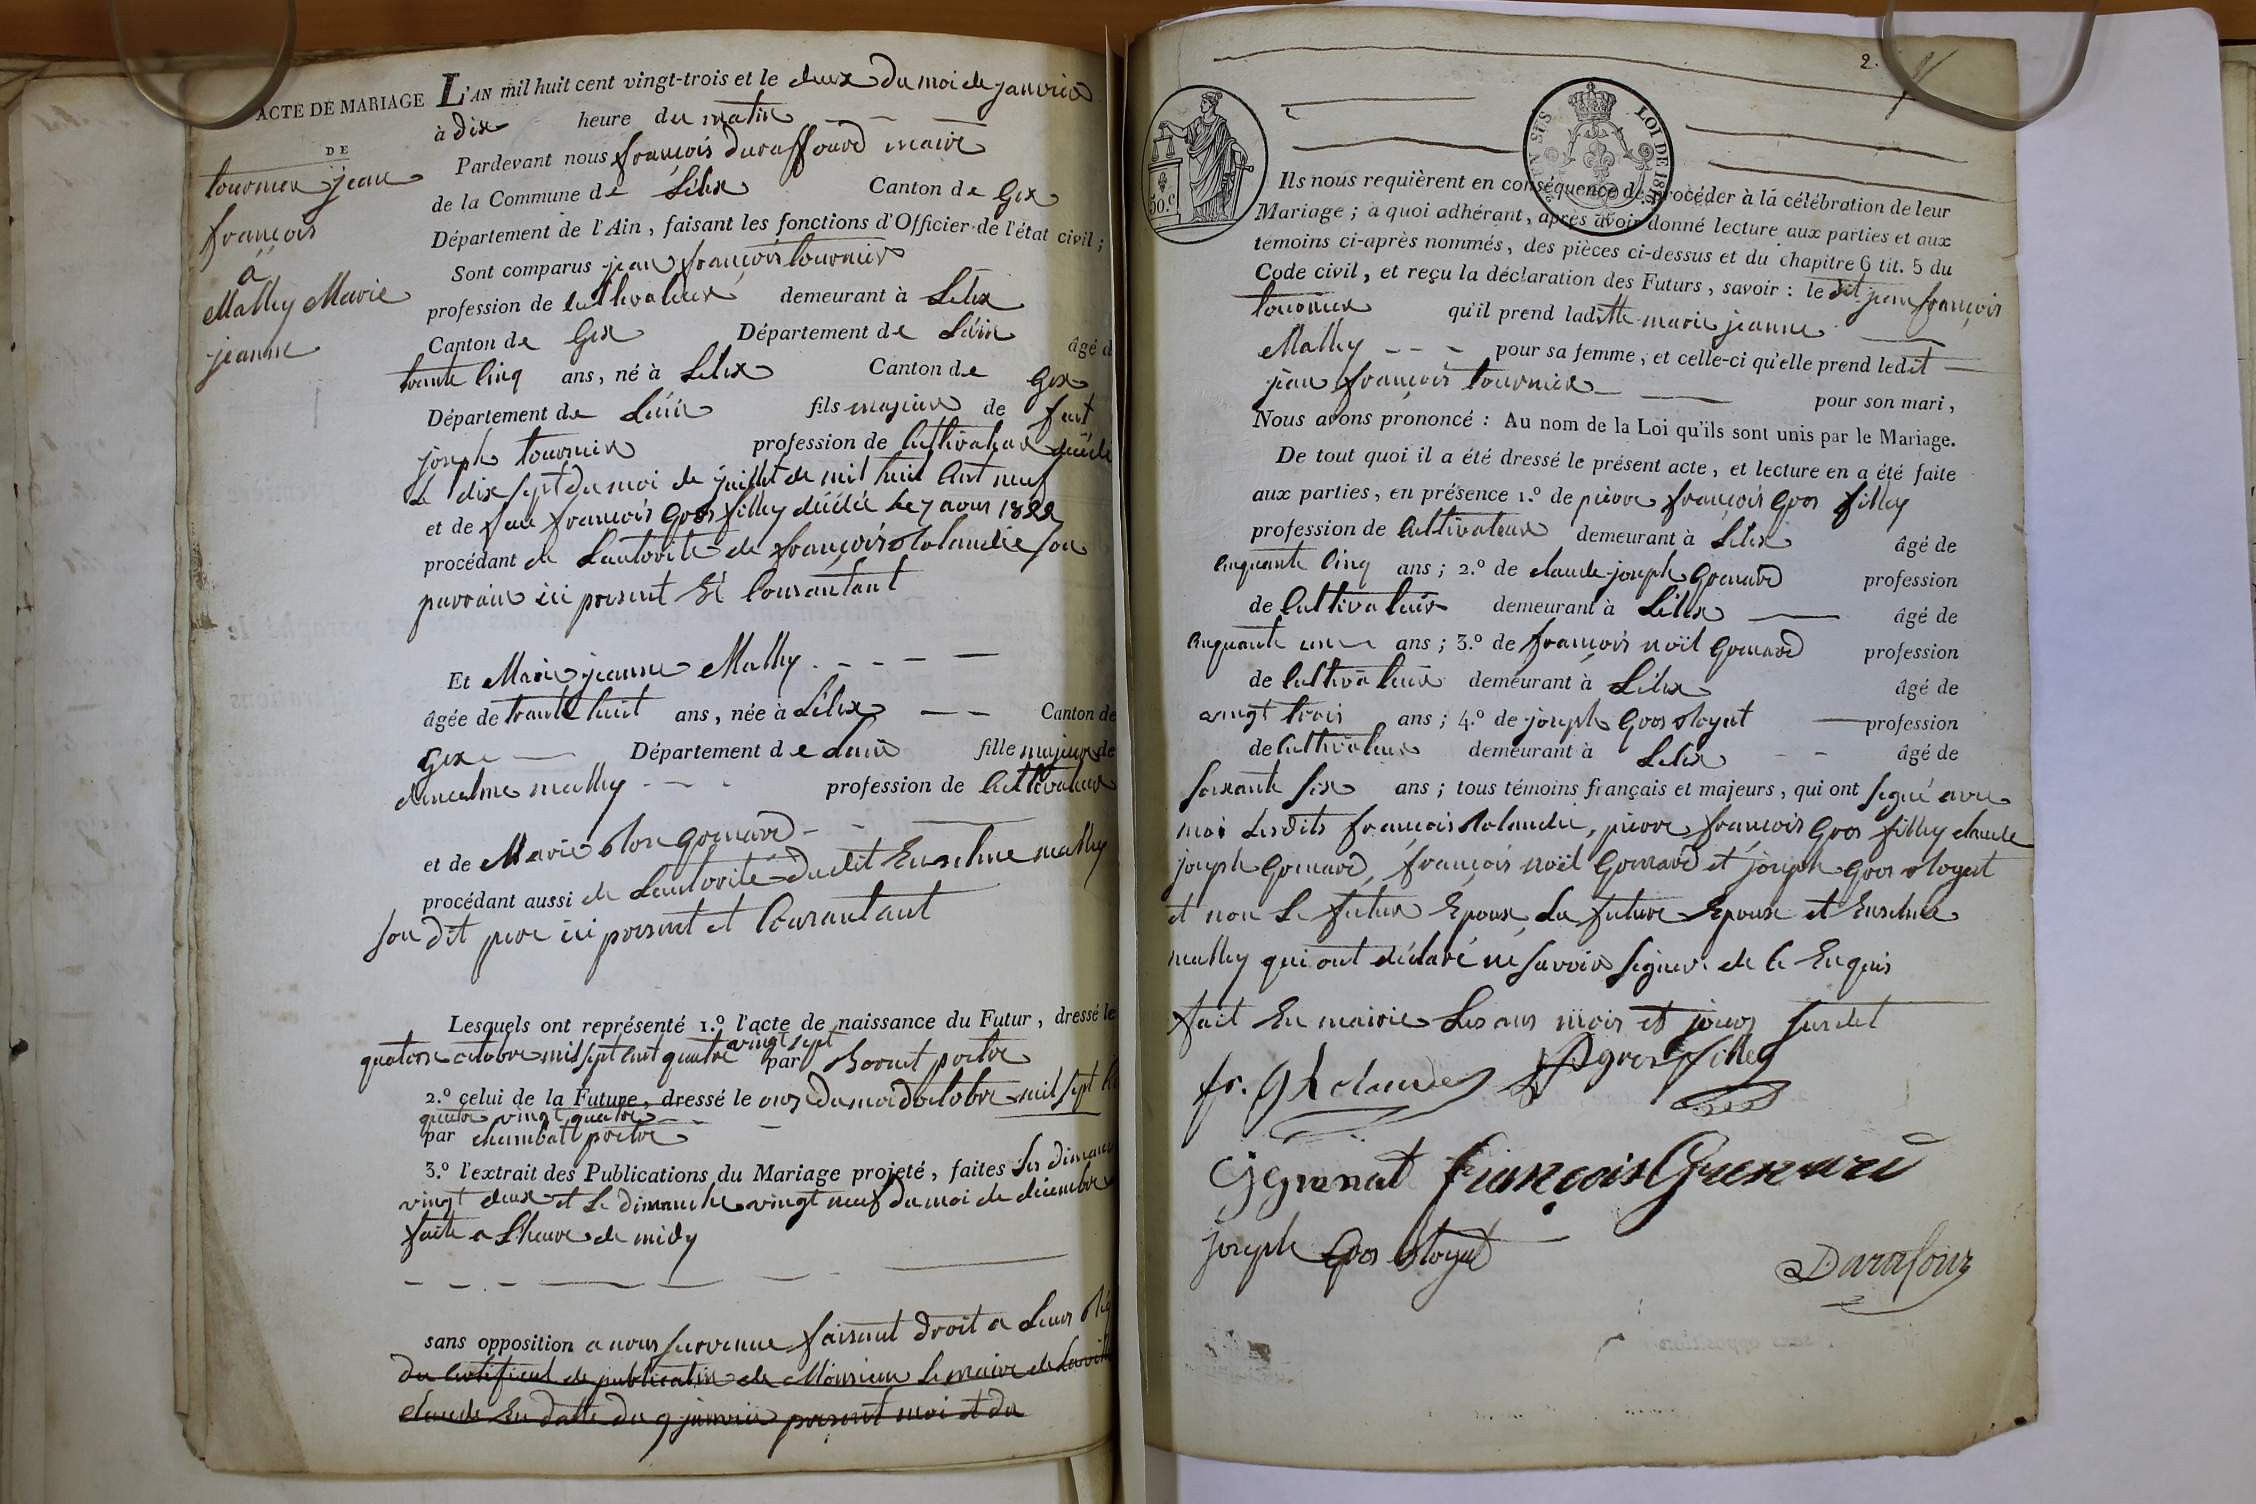 ACTE DE MARIAGE
DE
tournier jean
françois
a
Mathy Marie
jeanne
L'AN mil huit cent vingt-trois et le deux du moi de janvier
à dix heure du matin
Pardevant nous françois duraffourd maire
de la Commune de Lélex Canton de Gex
Département de l'Ain, faisant les fonctions d'Officier de l'état civil;
Sont comparus jean françois tournier
profession de Cultivateur demeurant à Lélex
Canton de Gex Département de Lain âgé d
trante Cinq ans, né à Lélex Canton de Gex
Département de Lain fils majeur de feut
joseph tournier profession de Cultivateur
Le dix sept du moi de juillet de mil huit Cent neuf
et de feue françois Gros filley décédée le 7 aous 1822
procédant de Lautorité de françois Rolandée son
parrain ici present Et Consantant
Et Marie jeanne Mathy
âgée de trante huit ans, née à Lélex Canton de
Gex Département de Lain fille majeure de
danselme mathy profession de Cultivateur
et de Marie Rose Gonard
procédant aussi de Lautorité dudit Enselme mathy
son dit pere ici present et Consantant
Lesquels ont représenté 1.º l'acte de naissance du Futur, dressé le
quatorse octobre mil sept cent quatre vingt sept par Borne pretre
2.º celui de la Future, dressé le onse du moi doctobre mil sept
quatre vingt quatre
par chambat pretre
3.º l'extrait des Publications du Mariage projeté, faites les dimanche
vingt deux et Le dimanche vingt neuf du moi de décembre
faite a Lheure de midy
sans opposition a nous survenue faisant droit a Leurs
du Certificat de publication de Monsieur Le maire de
claude En datte du 9 janvier present moi et du
2.
50.c
LOI DE 18
Ils nous requièrent en conséquence de procéder à la célébration de leur
Mariage; à quoi adhérant, après avoir donné lecture aux parties et aux
témoins ci-après nommés, des pièces ci-dessus et du chapitre 6 tit. 5 du
Code civil, et reçu la déclaration des Futurs, savoir: le dit jean françois
tournier qu'il prend laditte marie jeanne
Mathy pour sa femme, et celle-ci qu'elle prend ledit
jean françois tournier pour son mari,
Nous avons prononcé: Au nom de la Loi qu'ils sont unis par le Mariage.
De tout quoi il a été dressé le présent acte, et lecture en a été faite
aux parties, en présence 1.º de pierre françois Gros filley
profession de Cultivateur demeurant à Lélex âgé de
Cinquante Cinq ans; 2.º de claude joseph Gonard profession
de Cultivateur demeurant à Lélex âgé de
Cinquante un ans; 3.º de françois noël Gonard profession
de Cultivateur demeurant à Lélex âgé de
vingt trois ans; 4.º de joseph Gros Royat profession
de Cultivateur demeurant à Lélex âgé de
soixante six ans; tous témoins français et majeurs, qui ont signé avec
moi Lesdits françois Rolandée, pierre françois Gros filley claude
joseph Gonard, françois noël Gonard et joseph Gros Royat
et non Le futur Epoux La future Epouse et Enselme
mathy qui ont déclaré ne savoir signer de Ce Enquis
fait En mairie Les ans mois et jours susdit
gros filley
françois
joseph Gros Royat